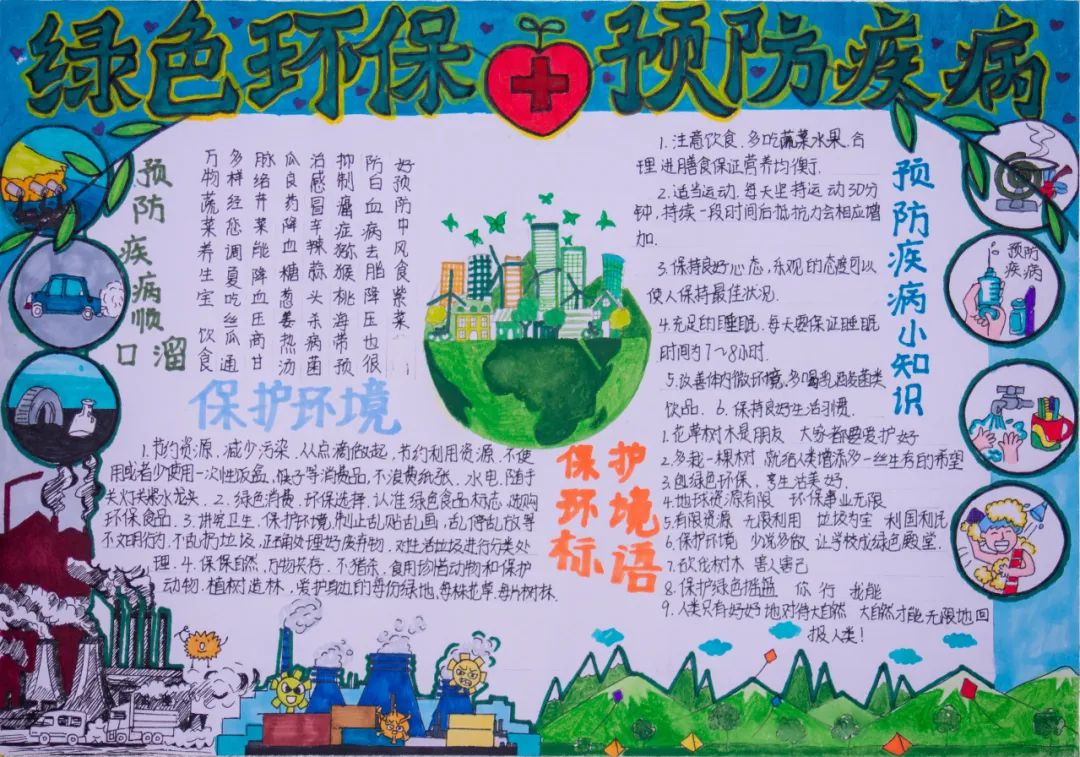 绿色环保 预防疾病
预防疾病顺口溜
万物蔬菜养生宝 饮食
多样经您调夏吃丝瓜通
脉络芹菜能降血压商甘
瓜良药降血糖葱姜热汤
治感冒辛辣蒜头杀病菌
抑制癌症猕猴桃海带预
防白血病去脂降压也很
好预防中风食紫菜
保护环境
1.节约资源,减少污染,从点滴做起,节约利用资源,不使
用或者少使用一次性饭盒,筷子等消费品,不浪费纸张、水电,随手
关灯关紧水龙头. 2.绿色消费,环保选择,认准绿色食品标志,选购
环保食品. 3.讲究卫生,保护环境,制止乱贴乱画,乱停乱放等
不文明行为,不乱扔垃圾,正确处理好废弃物,对生活垃圾进行分类处
理. 4.保保自然,万物长存,不猎杀,食用珍惜动物和保护
动物.植树造林,爱护身边的每份绿地,每株花草,每片树林.
预防疾病小知识
1.注意饮食.多吃蔬菜水果.合
理进用膳食保证营养均衡.
2.适当运动.每天坚持运动30分
钟,持续一段时间后抵抗力会相应增
加.
3.保持良好心态,乐观的态度可以
使人保持最佳状况.
4.充足的睡眠.每天要保证睡眠
时间为7~8小时.
5.改善体内微环境,多喝乳酸菌类
饮品. 6.保持良好生活习惯.
预防
疾病
保护环境标语
1.花草树木是朋友 大家都要爱护好
2.多栽一棵树 就给人类增添多一丝生存的希望
3.创绿色环保、享生活美好.
4.地球资源有限 环保事业无限
5.有限资源 无限利用 垃圾为宝 利国利民
6.保护环境 少说多做 让学校成绿色殿堂.
7.砍伐树木 害人害己
8.保护绿色摇篮 你 行 我能
9.人类只有好好地对待大自然 大自然才能无限地回
报人类!